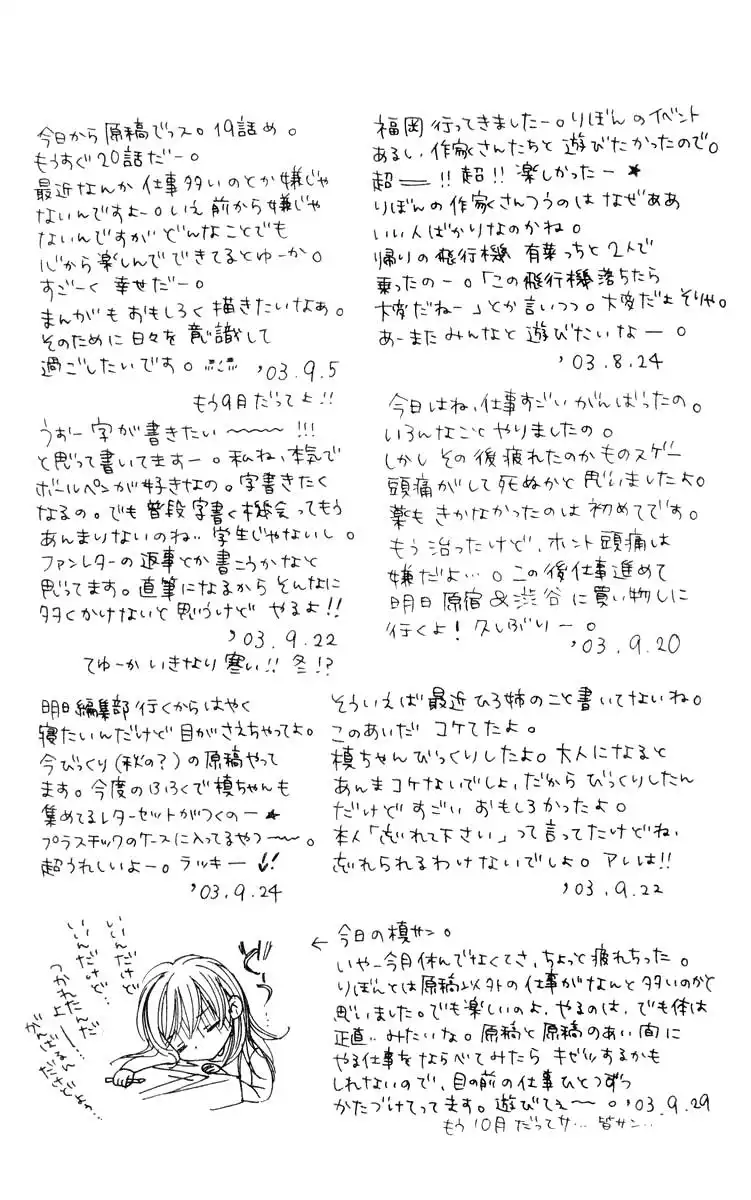 福岡行ってきましたー。りぼんのイベント
あるし、作家さんたちと遊びたかったので。
超――!!超!!楽しかったー★
りぼんの作家さんつうのはなぜああ
いい人ばかりなのかね。
帰りの飛行機 有葉っちと2人で
乗ったのー。「この飛行機落ちたら
大変だねー」とか言いつつ。大変だよそりゃ。
あーまたみんなと遊びたいなー。
'03.8.24
今日から原稿でっス。19話め。
もうすぐ20話だー。
最近なんか仕事多いのとか嫌じゃ
ないんですよー。いえ前から嫌じゃ
ないんですがどんなことでも
心から楽しんでできてるとゆーか。
すごーく幸せだー。
まんがもおもしろく描きたいなぁ。
そのために日々を意識して
過ごしたいです。
'03.9.5
もう9月だってよ!!
今日はね、仕事すごいがんばったの。
いろんなことやりましたの。
しかしその後疲れたのかものスゲー
頭痛がして死ぬかと思いましたよ。
薬もきかなかったのは初めてです。
もう治ったけど、ホント頭痛は
嫌だよ…。この後仕事進めて
明日原宿&渋谷に買い物しに
行くよ!久しぶりー。
'03.9.20
うおー字が書きたい~~~~!!!
と思って書いてますー。私ね、本気で
ボールペンが好きなの。字書きたく
なるの。でも普段字書く機会ってもう
あんまりないのね‥学生じゃないし。
ファンレターの返事とか書こうかなと
思ってます。直筆になるからそんなに
多くかけないと思うけど やるよ!!
'03.9.22
てゆーかいきなり寒い!!冬!?
そういえば最近ひろ姉のこと書いてないね。
このあいだ コケてたよ。
槙ちゃんびっくりしたよ。大人になると
あんまコケないでしょ、だからびっくりしたん
だけどすごいおもしろかったよ。
本人「忘れて下さい」って言ってたけどね、
忘れられるわけないでしよ。アレは!!
'03.9.22
明日編集部行くからはやく
寝たいんだけど目がさえちゃってよ。
今びっくり(秋の?)の原稿やって
ます。今度のふろくで槙ちゃんも
集めてるレターセットがつくのー★
プラスチックのケースに入ってるやつ~~。
超うれしいよー。ラッキー!!
'03.9.24
←今日の槙サン。
いやー今月休んでなくてさ、ちょっと疲れちった。
りぼんとは原稿以外の仕事がなんと多いのかと
思いました。でも楽しいのよ、やるのは、でも体は
正直‥みたいな。原稿と原稿のあい間に
やる仕事をならべてみたら キゼツするかも
しれないので、目の前の仕事ひとつずつ
かたづけてってます。遊びてえ~~。'03.9.29
もう10月だってサ…皆サン…
ど~っ
いいんだけど
いいんだけど…
つかれたんだ
よー…
がんばるん
だけどねっ…